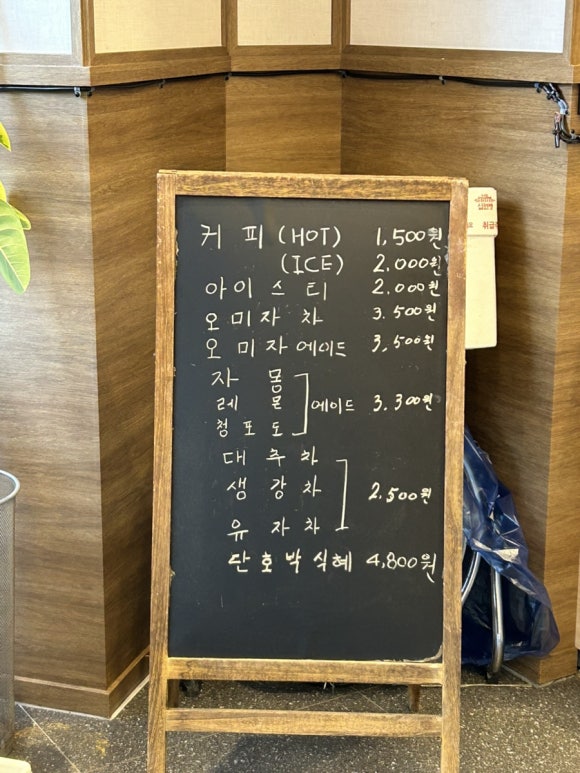 커피(HOT) 1,500원
(ICE) 2.000원
아이스티 2.000원
오미자차 3.500원
오미자에이드 3,500원
자몽
레몬 에이드 3.300원
청포도
대추차
생강차 2,500원
유자차
단호박식혜 4,800원
취급